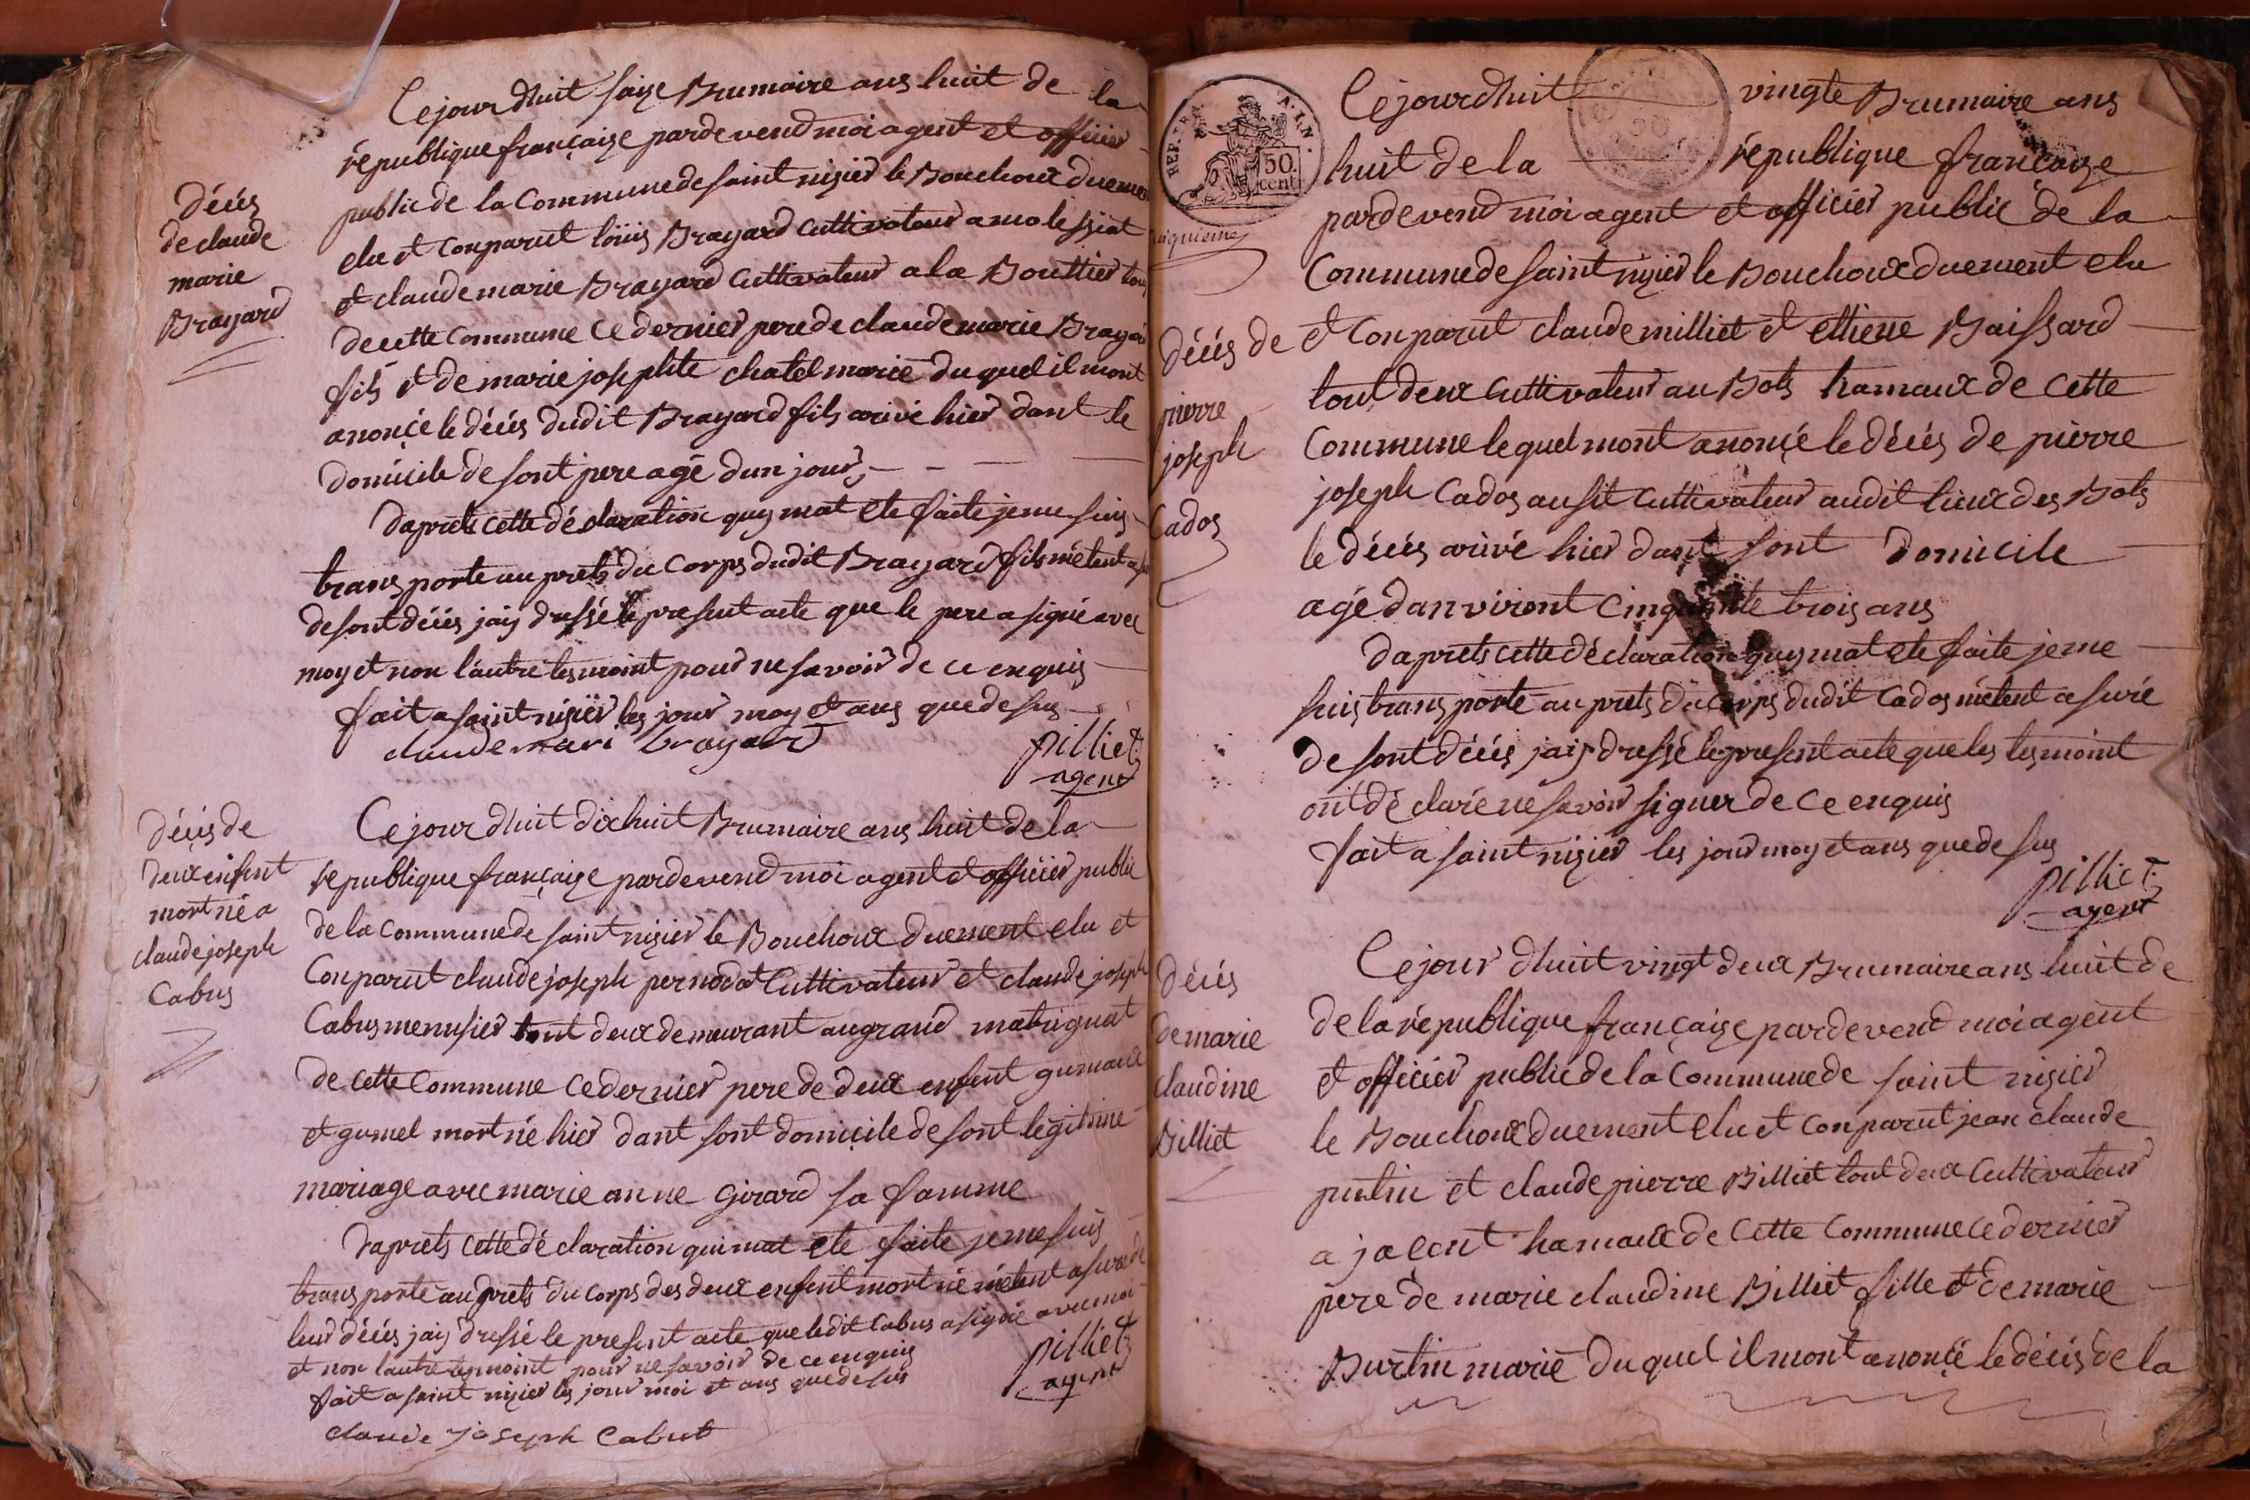 décés
de claude
marie
Brayard
Ce jour dhuit saize Brumaire ans huit de la
république françaize pardevend moi agent et officier
public de la Commune de saint nizier le Bouchoux duemen
elu et Conparut löuis Brayard Cuttivateur a molessiat
et claude marie Brayard Cuttivateur a la Bouttier tou
de cette Commune Ce dernier pere de claude marie Braya
fils et de marie josephte chatel marié du quel il mont
anonçé le décés dudit Brayard fils arivé hier dant le
domicile de sont pere agé dun jour
daprets cette déclaration quy mat ete faite je me suis
transporte au prets du Corps dudit Brayard fils métent
de sont décés jaiy dressé le present acte que le pere a signé avec
moy et non lautre tesmoint pour ne savoir de ce enquis
fait a saint nizier les jour moy et ans que desus
claude mari brayard
pilliet
agent
décés de
deux enfent
mort né a
claude joseph
Cabus
Ce jour dhuit dix huit Brumaire ans huit de la
république françaize pardevend moi agent et officier public
de la Commune de saint nizier le Bouchoux duement elu et
Conparut claude joseph pernodat Cuttivateur et claude joseph
Cabus menusier tout deux demeurant au grand matrignat
de cette Commune Ce dernier pere de deux enfent gumaux
et gumel mort né hier dant sont domicile de sont légitime
mariage avec marie anne Girard sa famme
daprets cette déclaration qui mat ete faite je me suis
transporté au prets du Corps des deux enfent mort né métent asuré de
leur décés jaiy dressé le present acte que ledit Cabus a signé avec moi
et non lautre tesmoint pour ne savoir de ce enquis
fait a saint nizier les jour moi et ans que desus
pilliet
agent
claude joseph Cabut
REP. FRA
A.L.N.
50.
cent
Ce jour dhuit vingte Brumaire ans
huit de la république françaize
pardevend moi agent et officier public de la
Commune de saint nizier le Bouchoux duement elu
décés de
pierre
joseph
Cados
et Conparut claude milliet et ettiene Baissard
tout deux Cuttivateur au Bots hamaux de Cette
Commune lequel mont anonçé le décés de pierre
joseph Cados ausit Cuttivateur audit lieux des Bots
le décés arivé hier dant sont domicile
agé danviront Cinquante trois ans
daprets cette déclaration quy mat ete faite je me
suis transporté au prets du Corps dudit Cados métent asuré
de sont décés jaiy dressé le present acte que les tesmoint
ont déclaré ne savoir signer de Ce enquis
fait a saint nizier les jour moy et ans que desus
pilliet
agent
décés
de marie
claudine
Billiet
Ce jour dhuit vingt deux Brumaire ans huit de
de la république françaize pardevend moi agent
et officier public de la Commune de saint nizier
le Bouchoux duement elu et Conparut jean claude
putin et claude pierre Billiet tout deux Cuttivateur
a jacent hamaux de Cette Commune Ce dernier
pere de marie claudine Billiet fille et de marie
Burtin marié du quel il mont anonçé le décés de la